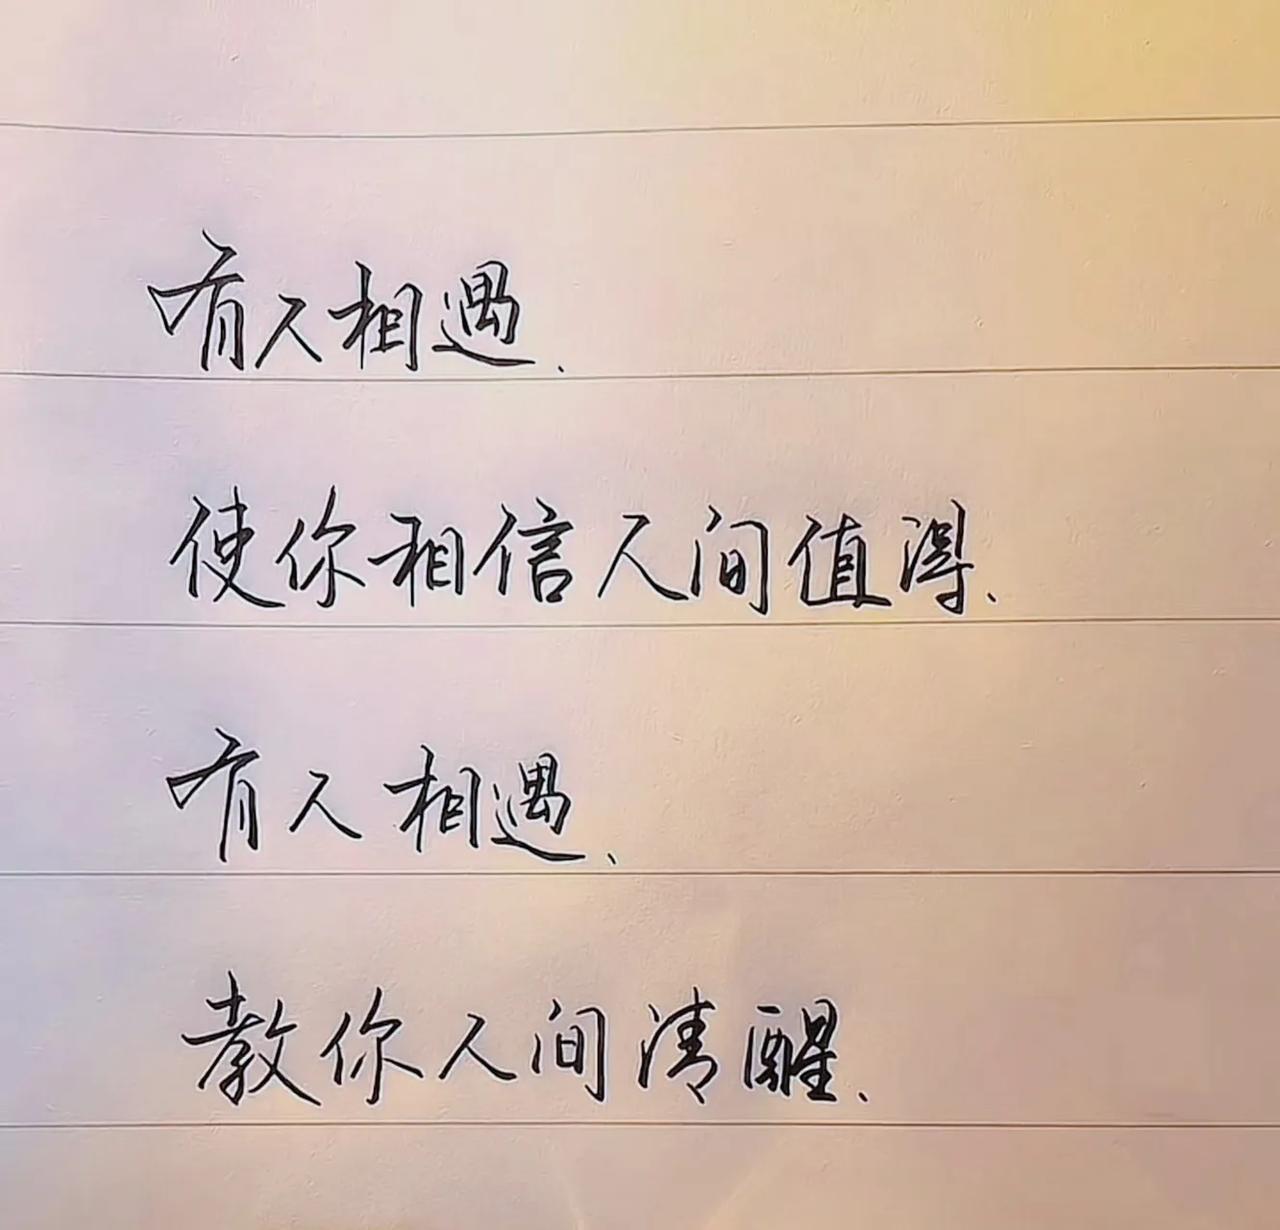 有人相遇、
使你相信人间值得、
有人相遇、
教你人间清醒、